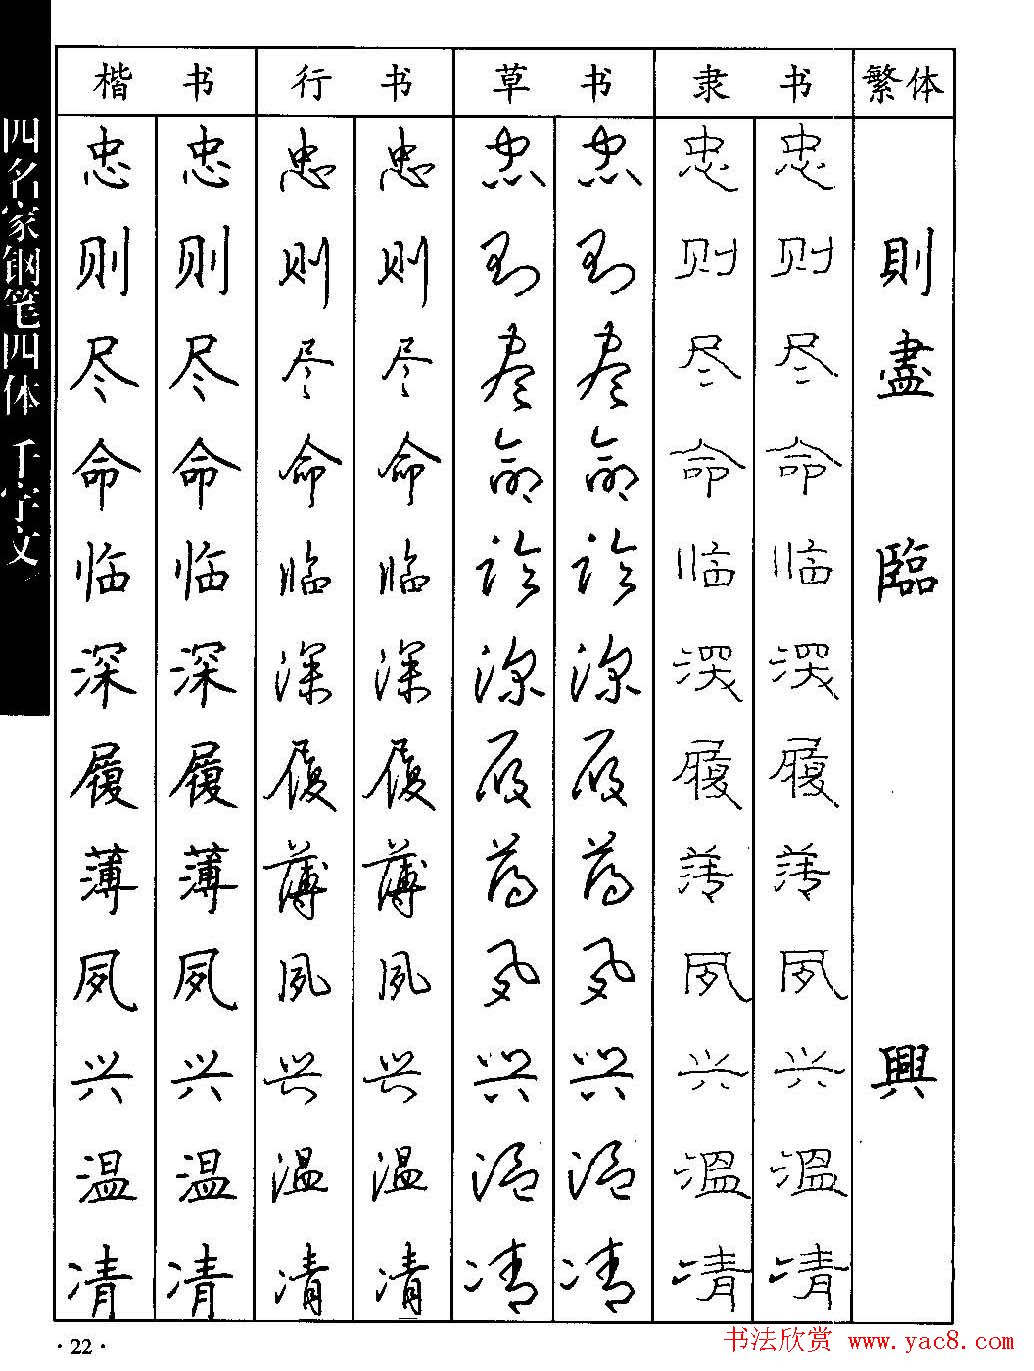 四名家钢笔四体 千字文
楷书 行书 草书 隶书 繁体
忠 忠 忠 忠 忠 忠 忠 忠
则 则 则 则 则 则 则 则 則
尽 尽 尽 尽 尽 尽 尽 尽 盡
命 命 命 命 命 命 命 命
临 临 临 临 临 临 临 临 臨
深 深 深 深 深 深 深 深
履 履 履 履 履 履 履 履
薄 薄 薄 薄 薄 薄 薄 薄
夙 夙 夙 夙 夙 夙 夙 夙
兴 兴 兴 兴 兴 兴 兴 兴 興
温 温 温 温 温 温 温 温
凊 凊 凊 凊 凊 凊 凊 凊
·22·
书法欣赏 www.yac8.com